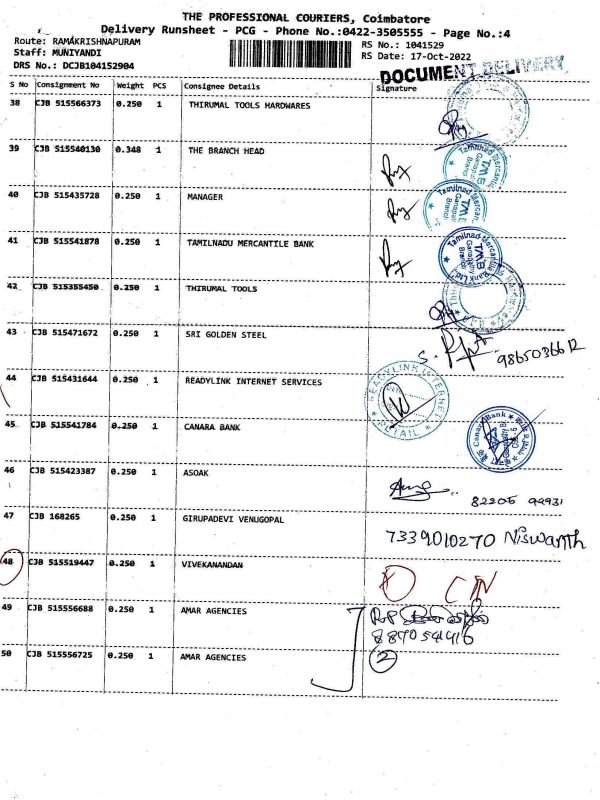 THE PROFESSIONAL COURIERS, Coimbatore
Delivery Runsheet - PCG - Phone No.:0422-3505555 - Page No.:4
Route: RAMAKRISHNAPURAM
RS No.: 1041529
Staff: MUNIYANDI
RS Date: 17-Oct-2022
DRS No.: DCJB104152904
DOCUMENT DELIVERY
S No Consignment No Weight PCS Consignee Details Signature
38 CJB 515566373 0.250 1 THIRUMAL TOOLS HARDWARES
39 CJB 515540130 0.348 1 THE BRANCH HEAD
Tamilnad Mercantile
TMB
Ganapathy
Branch
40 CJB 515435728 0.250 1 MANAGER
Tamilnad Mercantile
TMB
Ganapathy
Branch
41 CJB 515541878 0.250 1 TAMILNADU MERCANTILE BANK
Tamilnad Mercantile Bank Ltd
TMB
Ganapathy
Branch
42 CJB 515355450 0.250 1 THIRUMAL TOOLS
43 CJB 515471672 0.250 1 SRI GOLDEN STEEL
9865036612
44 CJB 515431644 0.250 1 READYLINK INTERNET SERVICES
READYLINK INTERNET
45 CJB 515541784 0.250 1 CANARA BANK
Canara Bank
46 CJB 515423387 0.250 1 ASOAK
82205 99931
47 CJB 168265 0.250 1 GIRUPADEVI VENUGOPAL
7339010270 Niswanth
48 CJB 515519447 0.250 1 VIVEKANANDAN
49 CJB 515556688 0.250 1 AMAR AGENCIES
50 CJB 515556725 0.250 1 AMAR AGENCIES
2